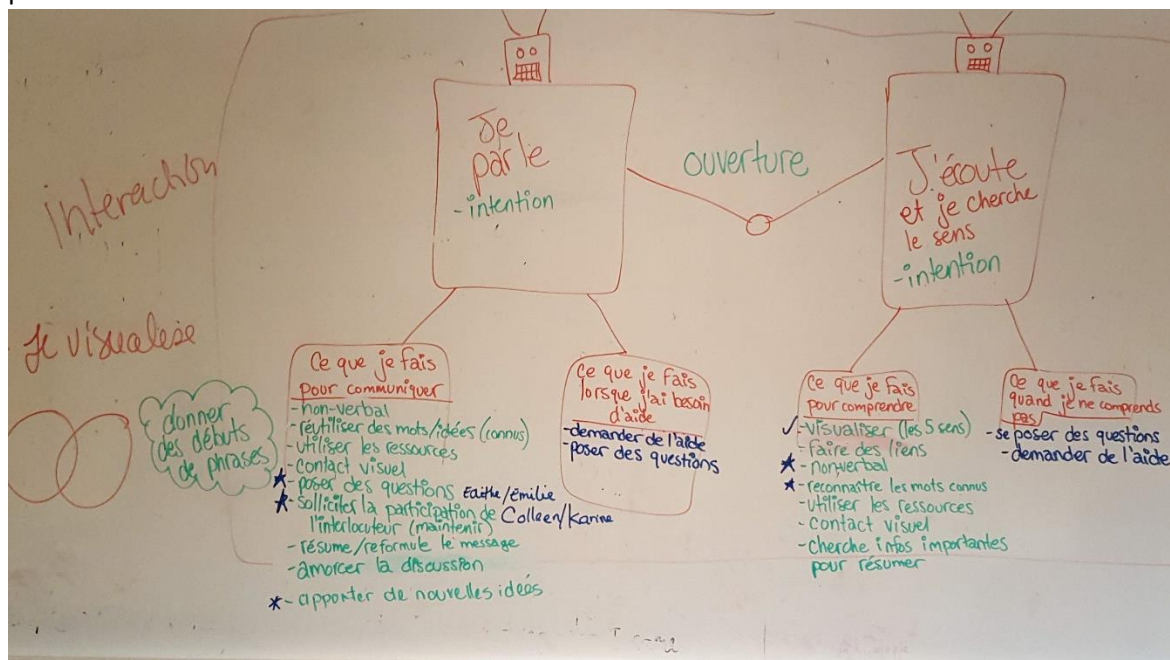 interaction
Je visualise
donner
des débuts
de phrases
Je
parle
-intention
ouverture
J'écoute
et je cherche
le sens
-intention
Ce que je fais
pour communiquer
-non-verbal
-réutiliser des mots/idées (connus)
-utiliser les ressources
-contact visuel
* -poser des questions Faithe/Émilie
* -solliciter la participation de Colleen/Karine
l'interlocuteur (maintenir)
-résume/reformule le message
-amorcer la discussion
* -apporter de nouvelles idées
Ce que je fais
lorsque j'ai besoin
d'aide
-demander de l'aide
-poser des questions
Ce que je fais
pour comprendre
✓-visualiser (les 5 sens)
-faire des liens
* -nonverbal
* -reconnaître les mots connus
-utiliser les ressources
-contact visuel
-cherche infos importantes
pour résumer
Ce que je fais
quand je ne comprends
pas
-se poser des questions
-demander de l'aide